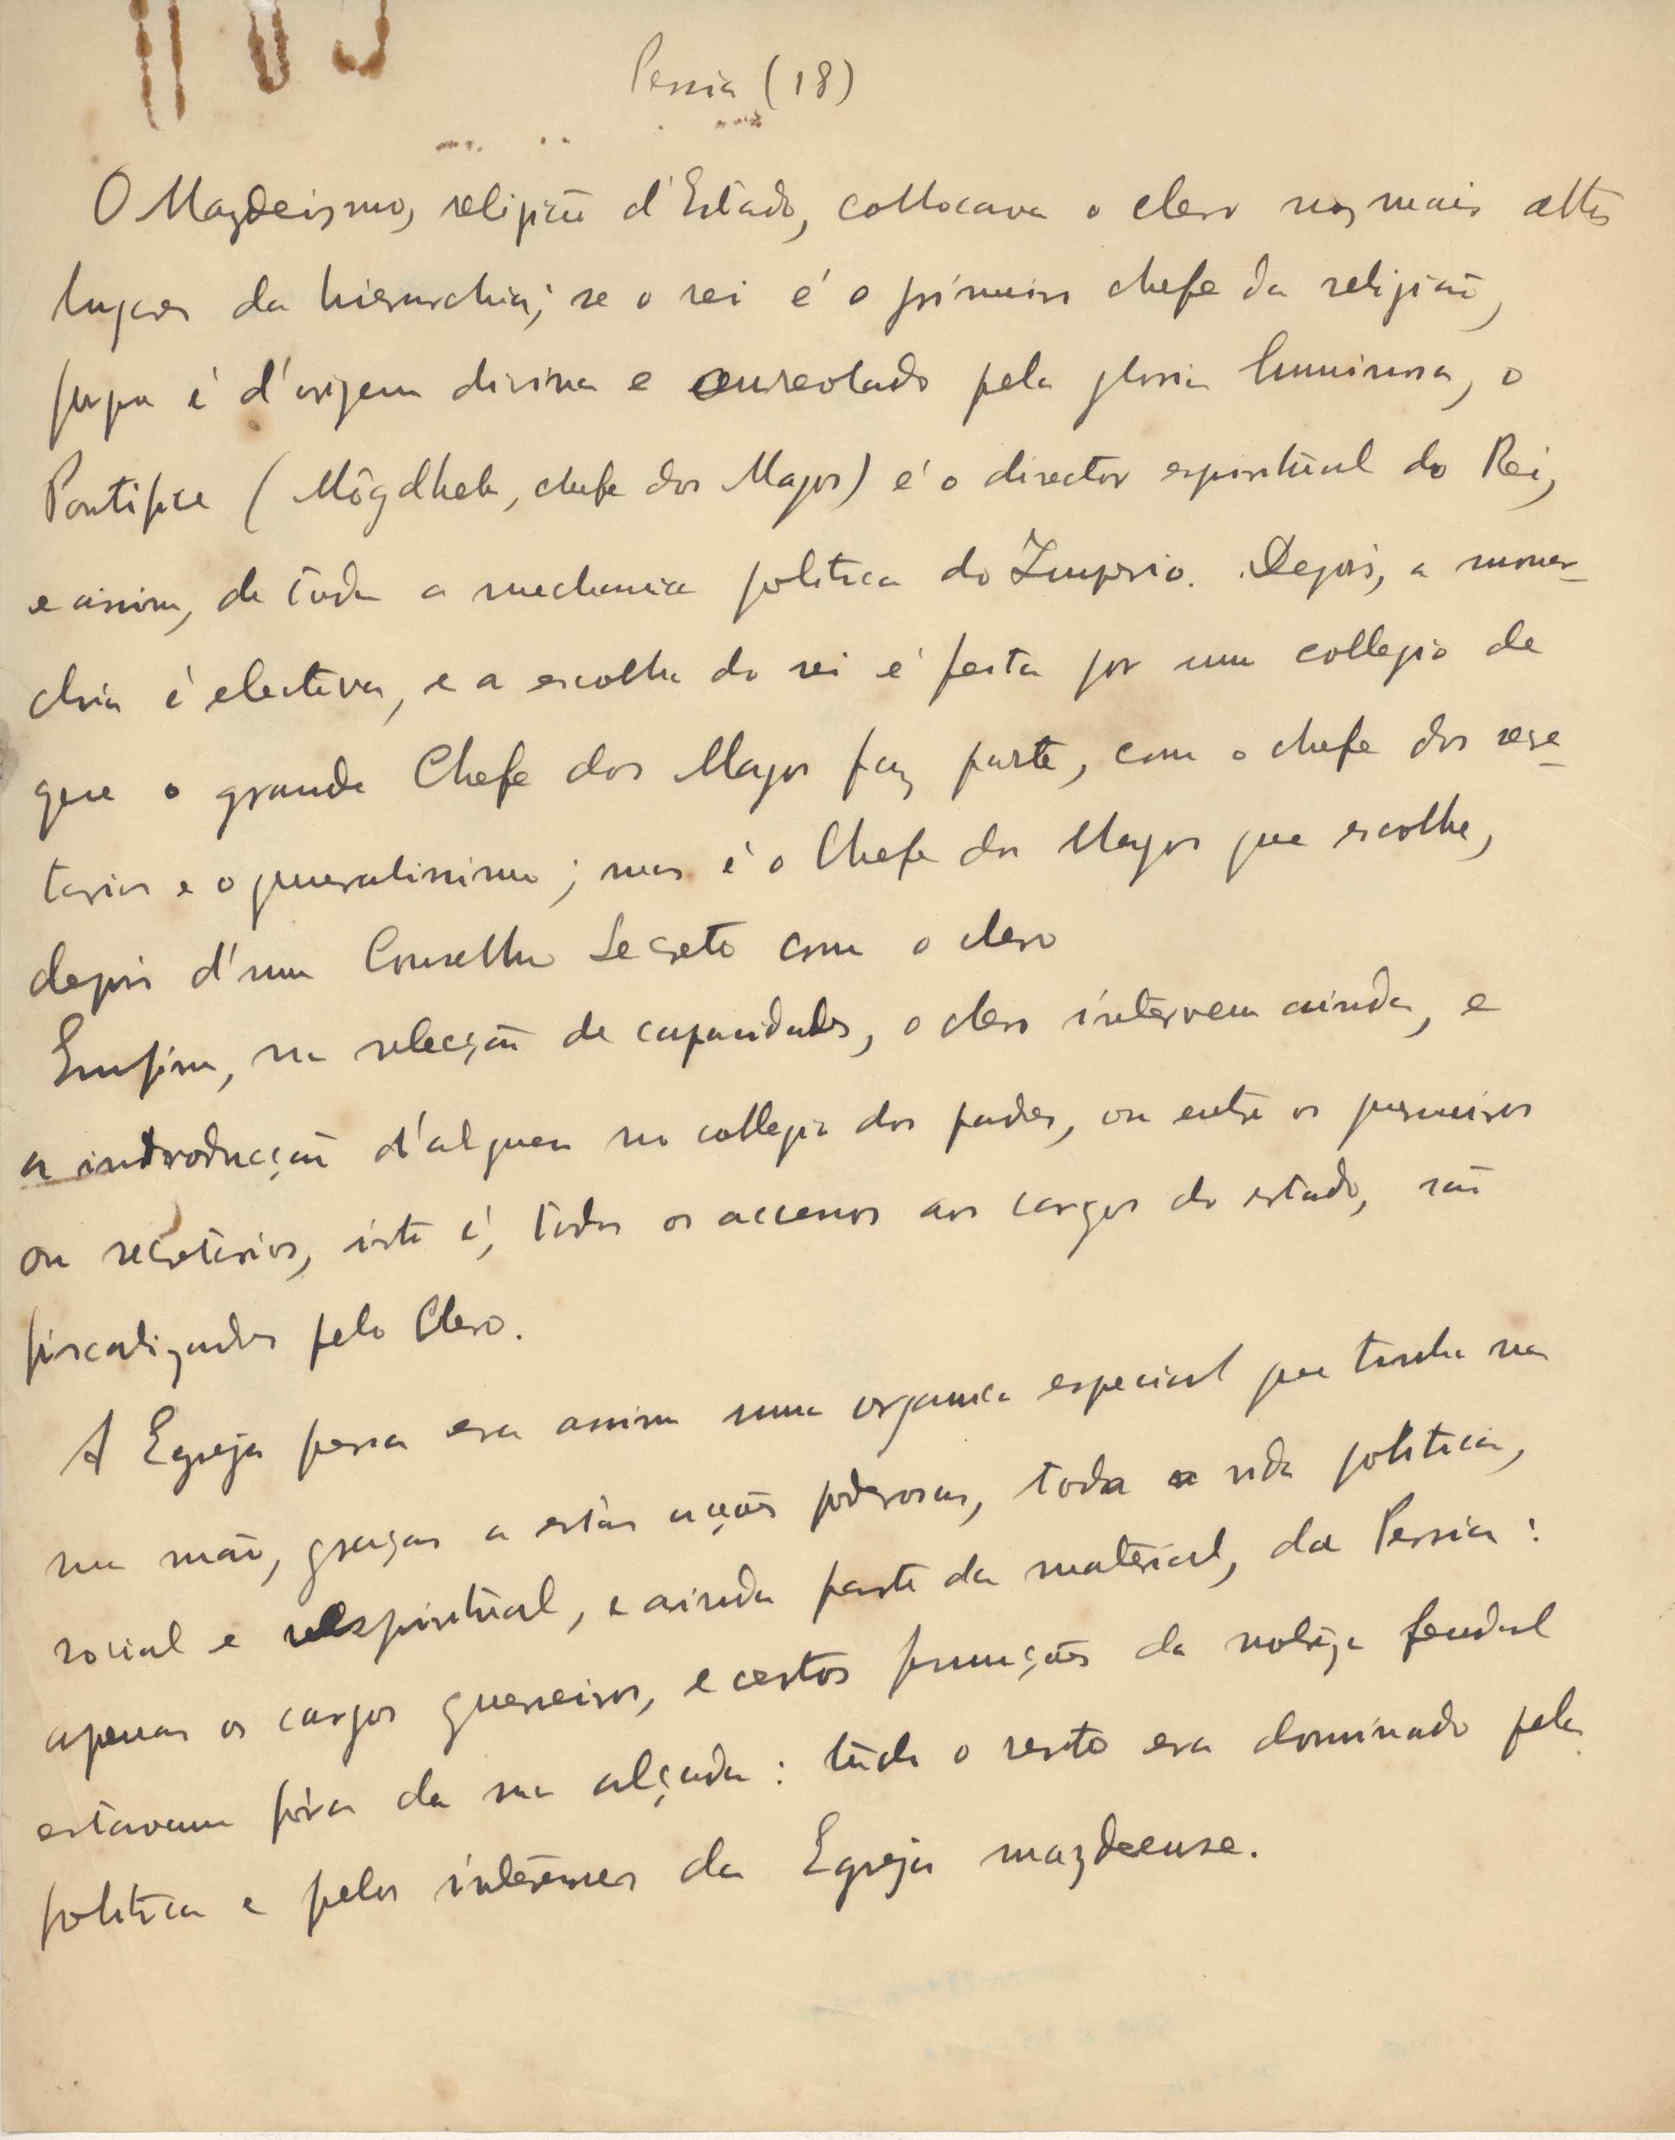 Persia (18)
O Mazdeismo, religião d'Estado, collocava o clero nos mais altos
lugares da hierarchia; se o rei é o primeiro chefe da religião,
porque é d'origem divina e aureolado pela gloria luminosa, o
Pontifice (Môgdheh, chefe dos Magos) é o director espiritual do Rei,
e assim, de toda a mechanica politica do Imperio. Depois, a monar-
chia é electiva, e a escolha do rei é feita por um collegio de
que o grande Chefe dos Magos faz parte, com o chefe dos secre-
tarios e o generalissimo; mas é o Chefe dos Magos que escolhe,
depois d'um Conselho Secreto com o clero
Emfim, na selecção de capacidades, o clero intervem ainda, e
a introducção d'alguem no collegio dos padres, ou entre os guerreiros
ou secretarios, isto é, todos os accessos aos cargos do estado, são
fiscalizados pelo Clero.
A Egreja persa era assim uma organica especial que tinha na
sua mão, graças a estas acções poderosas, toda a vida politica,
social e espiritual, e ainda parte da material, da Persia:
apenas os cargos guerreiros, e certos funcções da nobreza feudal
estavam fóra da sua alçada: tudo o resto era dominado pela
politica e pelos interesses da Egreja mazdeense.